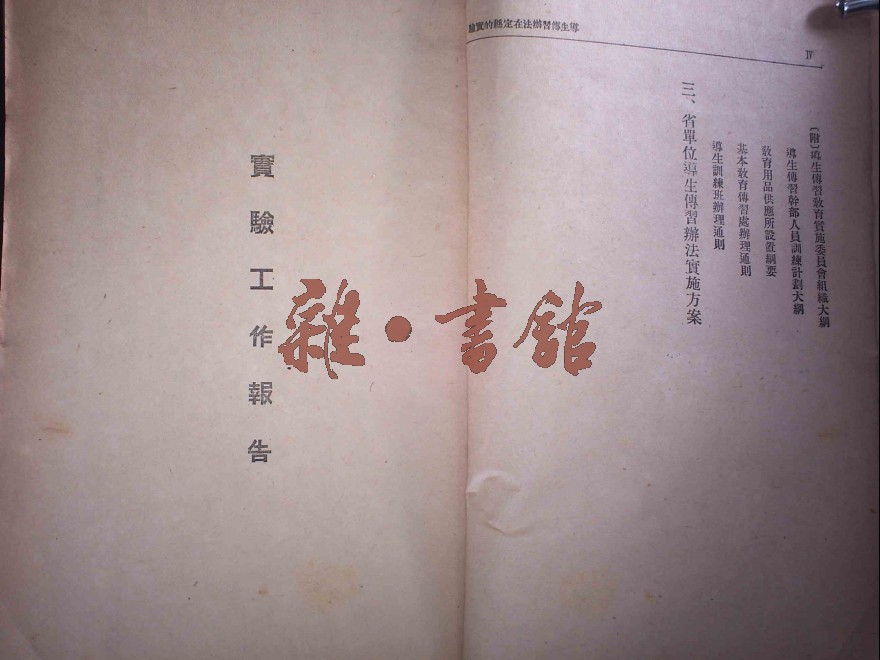 導生傳習辦法在定縣的實驗
IV
〔附〕導生傳習教育實施委員會組織大綱
導生傳習幹部人員訓練計劃大綱
教育用品供應所設置綱要
基本教育傳習處辦理通則
導生訓練班辦理通則
三、省單位導生傳習辦法實施方案
實驗工作報告
雜·書館